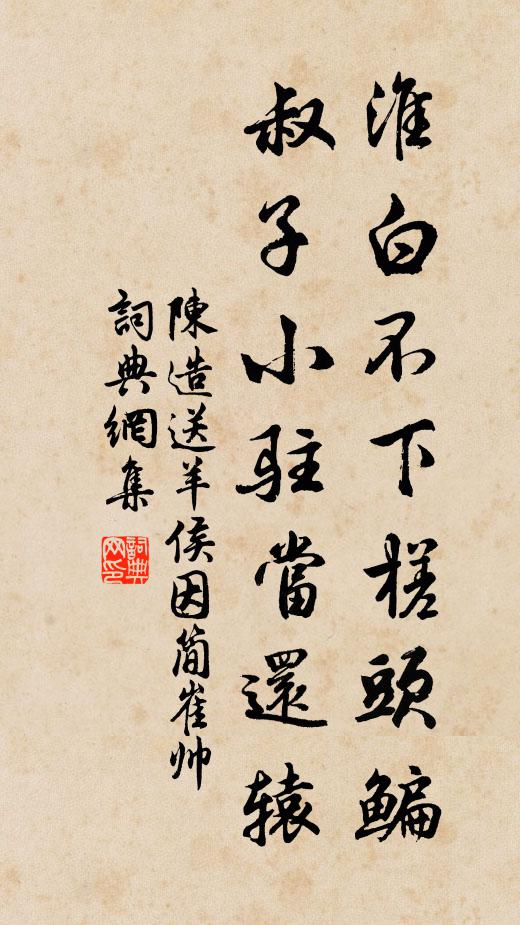 淮白不下槎頭鳊
叔子小駐當還辕
陳造送羊侯因簡崔帅
詞典網集
詞典網印